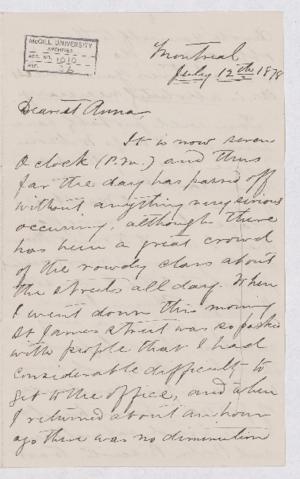 McGILL UNIVERSITY
ARCHIVES
ACC. NO. 1010
REF.
Montreal,
July 12th 1878
Dearest Anna,
It is now seven
O'clock (P.M.) and thus
far the day has passed off
without anything very serious
occuring, although there
has been a great crowd
of the rowdy class about
the streets all day. When
I went down this morning
St James street was so packed
with people that I had
considerable difficulty to
get to the office, and when
I returned about an hour
ago there was no diminution